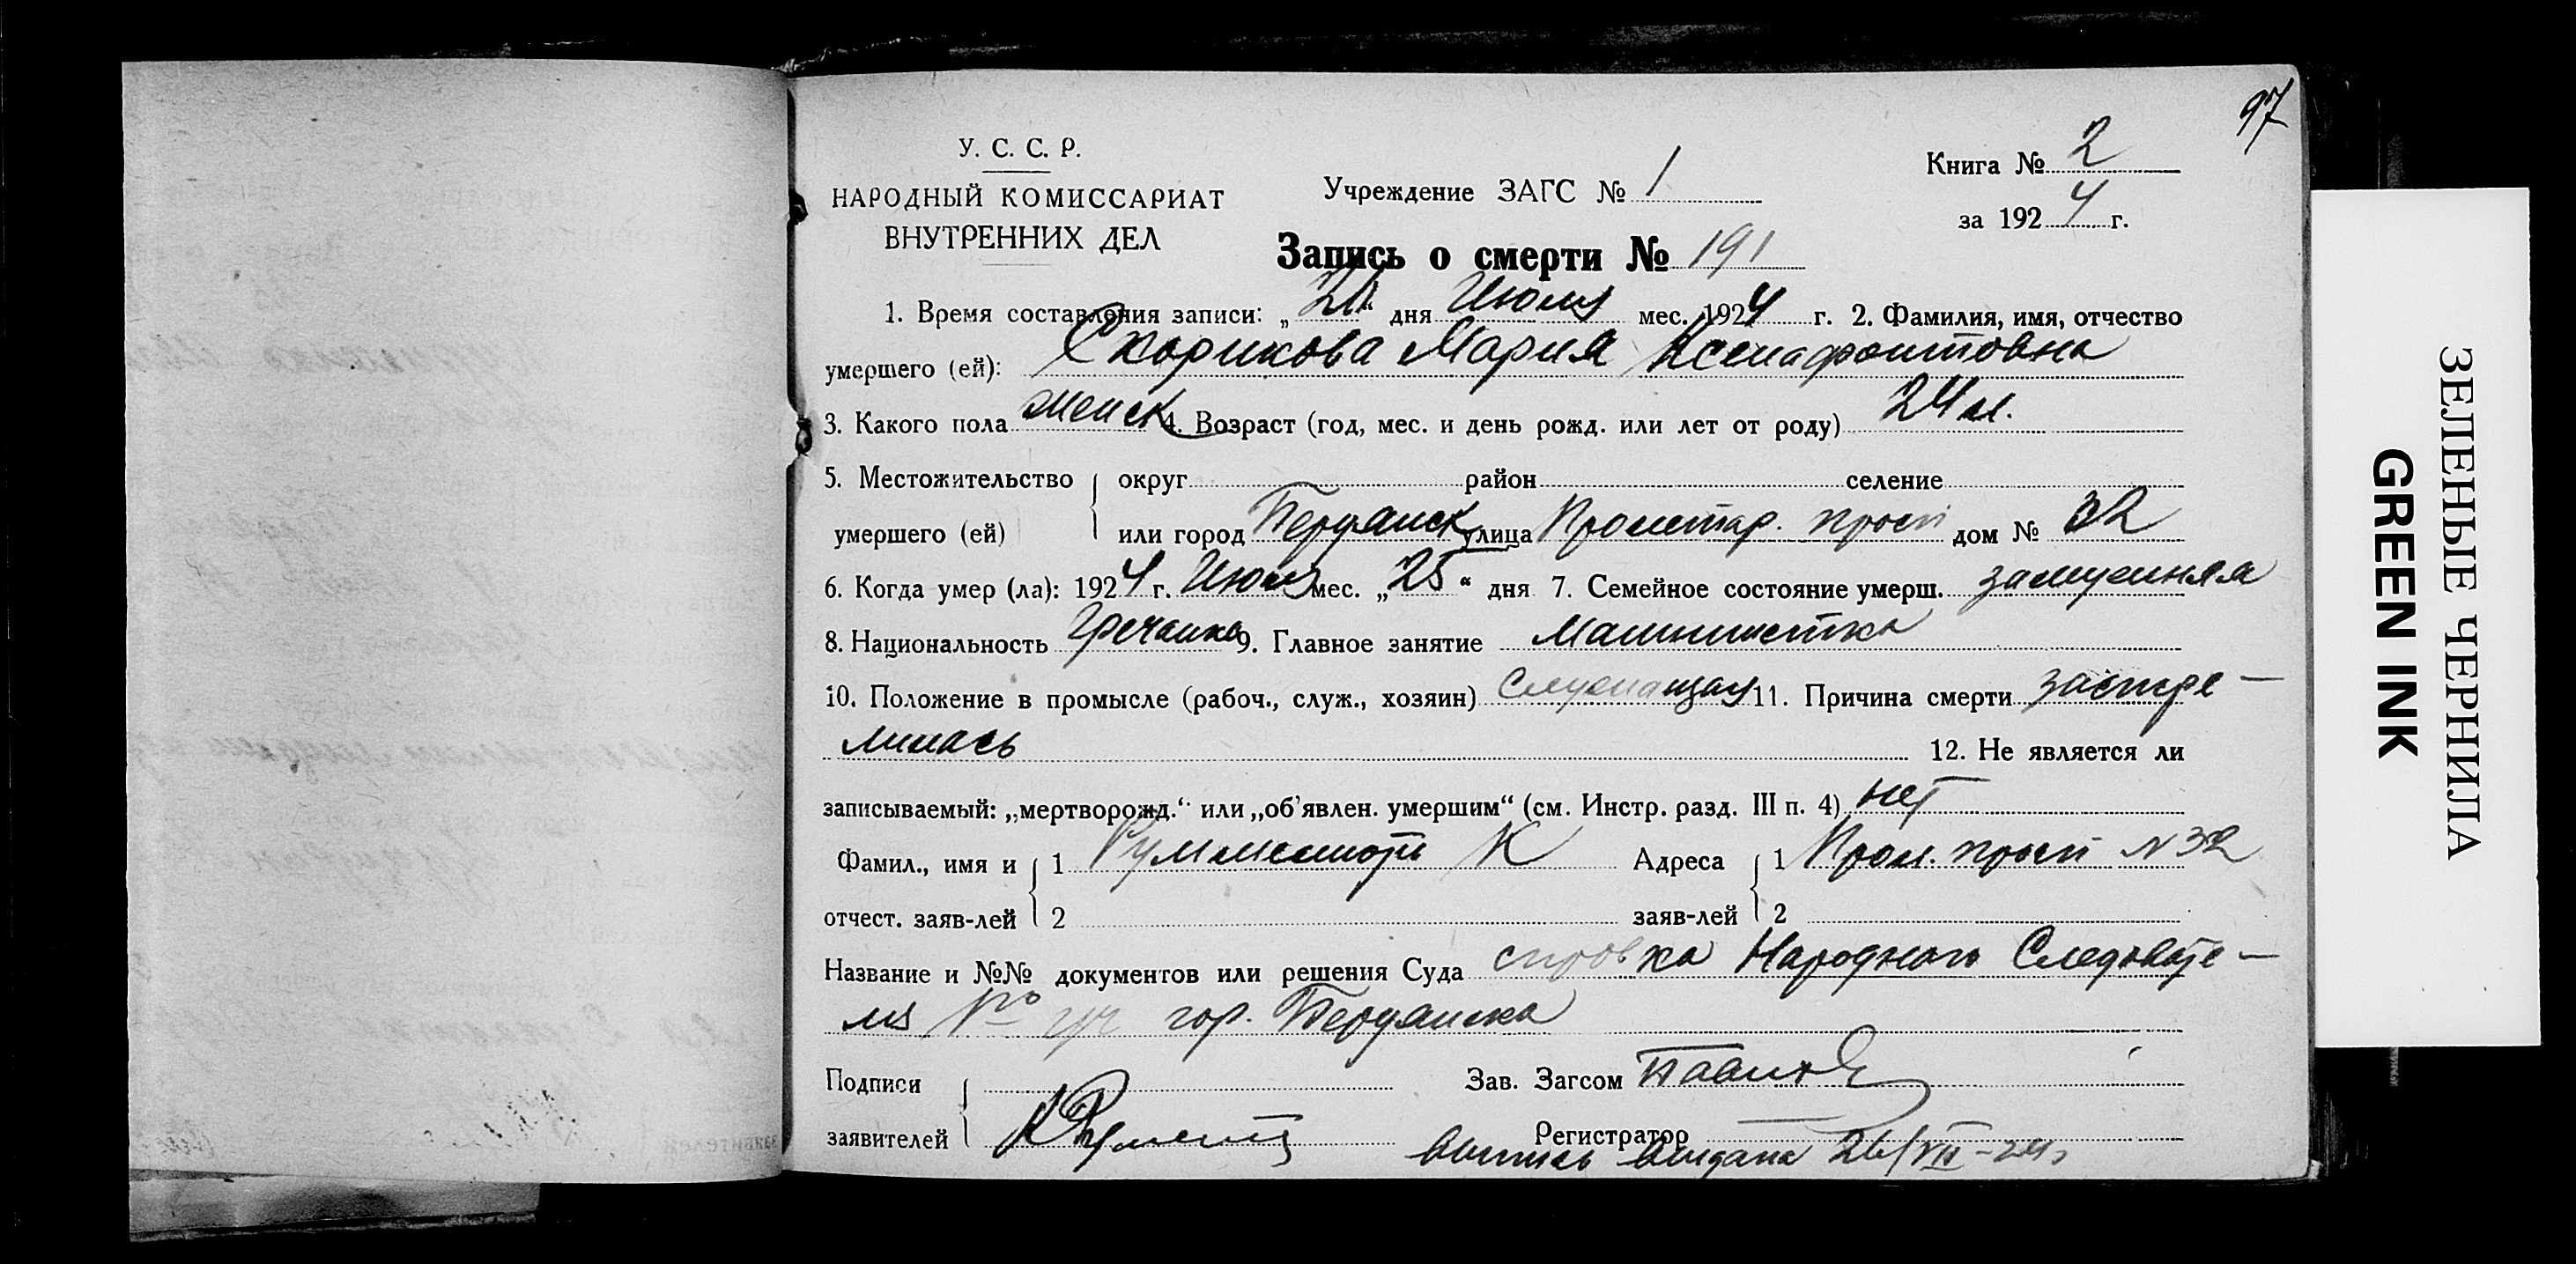 97
У. С. С. Р.
НАРОДНЫЙ КОМИССАРИАТ
ВНУТРЕННИХ ДЕЛ
Учреждение ЗАГС № 1
Книга № 2
за 1924 г.
Запись о смерти № 191
1. Время составления записи: „26“ дня Июля мес. 1924 г. 2. Фамилия, имя, отчество
умершего (ей): Скорикова Мария Ксенафонтовна
3. Какого пола женск 4. Возраст (год, мес. и день рожд. или лет от роду) 24 л.
5. Местожительство умершего (ей) округ район селение
или город Бердянск улица Пролетар. просп дом № 32
6. Когда умер (ла): 1924 г. Июля мес. „25“ дня 7. Семейное состояние умерш. замужняя
8. Национальность Гречанка 9. Главное занятие Машинистка
10. Положение в промысле (рабоч., служ., хозяин) Служащая 11. Причина смерти застре-
лилась 12. Не является ли
записываемый: „мертворожд.“ или „об'явлен. умершим“ (см. Инстр. разд. III п. 4) нет
Фамил., имя и отчест. заяв-лей 1 К Адреса заяв-лей 1 Прол. просп N 32
2 2
Название и №№ документов или решения Суда справка Народного Следовате-
ля № гор. Бердянска
Подписи заявителей Зав. Загсом
Регистратор
Выпись выдана 26/VII-24г
ЗЕЛЕНЫЕ ЧЕРНИЛА
GREEN INK